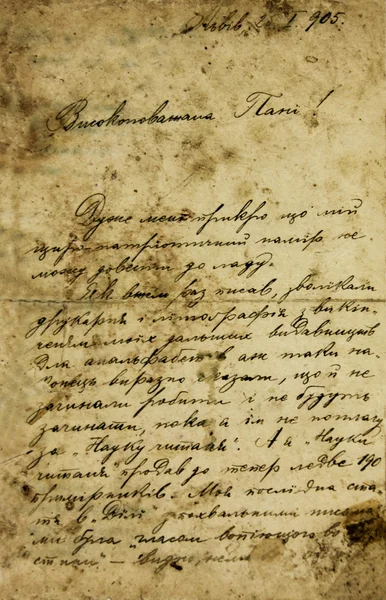 Львів, 2 I. 905.
Високоповажана Пані!
Дуже мені прикро що мій
щиро-патріотичний намір не
можу довести до ладу.
раз писав, зволікали
друкарні і літографії з викін-
ченєм моїх дальших видавництв
для анальфабетів аж таки на-
конець виразно сказали, що й не
зачинали робити і не будуть
зачинати, пока я їм не поплачу
за „Науку читаня". А я „Науки
читаня" продав до тепер ледве 190
примірників. Моя послідна ста-
тя в „Ділі" з похвальними
ми була „гласом вопіющого во
стині" — видно,